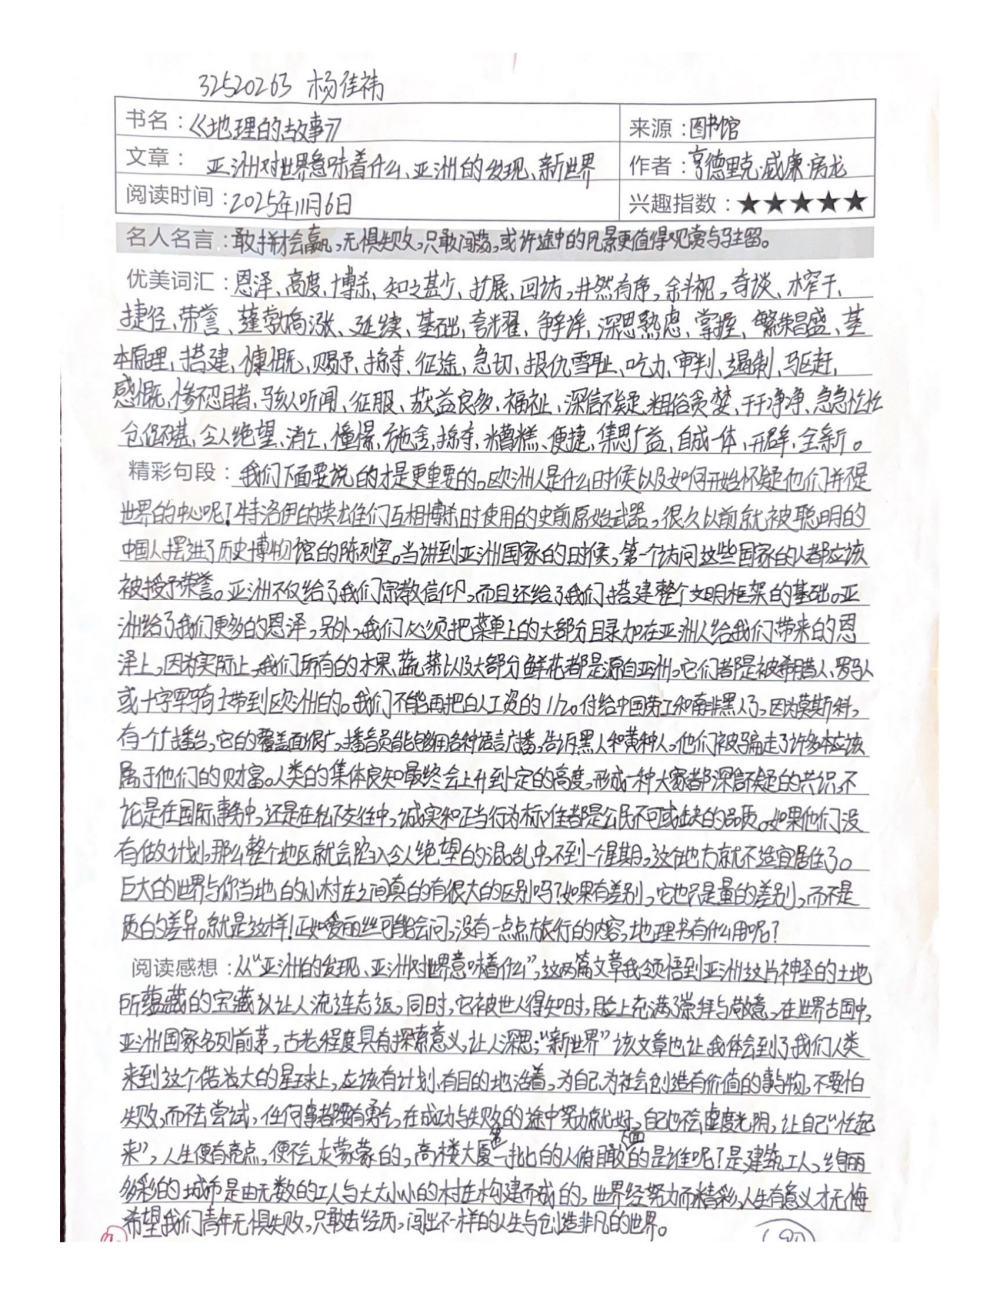 32520263 杨佳祎
书名：《地理的故事》 来源：图书馆
文章：亚洲对世界意味着什么、亚洲的发现、新世界 作者：亨德里克·威廉·房龙
阅读时间：2025年11月6日 兴趣指数：★★★★★
名人名言：敢拼才会赢，无惧失败，只敢闯荡，或许途中的风景更值得观赏与驻留。
优美词汇：恩泽、高度、博杀、知之甚少、扩展、回访，井然有序，余半视，奇谈、水窄于、
捷径、荣誉、蓬勃高涨、延续、基础，夸耀、争锋，深思熟虑、掌握、繁荣昌盛、基
本原理、搭建、慷慨、赐予、掠夺、征途、急切、报仇雪耻、吃力、审判、遏制、驱赶，
感慨、惨不忍睹、骇人听闻、征服、获益良多、福祉、深信不疑、粗俗贪婪、干干净净、急急忙忙
仓促不堪，令人绝望、消亡、憧憬、施舍、掠夺、糟糕、便捷、集思广益、自成一体、开辟、全新。
精彩句段：我们下面要说的才是更重要的。欧洲人是什么时候以及如何开始怀疑他们并不是
世界的中心呢！特洛伊的英雄们互相博杀时使用的史前原始武器，很久以前就被聪明的
中国人摆进了历史博物馆的陈列室。当讲到亚洲国家的时候，第一个访问这些国家的人都应该
被授予荣誉。亚洲不仅给了我们宗教信仰，而且还给了我们搭建整个文明框架的基础。亚
洲给了我们更多的恩泽，另外，我们必须把菜单上的大部分目录加在亚洲人给我们带来的恩
泽上，因为实际上，我们所有的水果、蔬菜以及大部分鲜花都是源自亚洲。它们都是被希腊人、罗马人
或十字军骑士带到欧洲的。我们不能再把白人工资的1/20付给中国劳工和南非黑人了，因为莫斯科，
有个广播台，它的覆盖面很广，播音员能够用各种语言广播，告诉黑人和黄种人，他们被骗走了许多本应该
属于他们的财富。人类的集体良知最终会上升到一定的高度，形成一种大家都深信不疑的共识，不
论是在国际事务中，还是在私下交往中，诚实和正当行为标准都是公民不可或缺的品质。如果他们没
有做好计划，那么整个地区就会陷入令人绝望的混乱中，不到一个星期，这个地方就不适宜居住了。
巨大的世界与你当地的小村庄之间真的有很大的区别吗？如果有差别，它也只是量的差别，而不是
质的差异。就是这样！正如爱丽丝可能会问，没有一点点旅行的内容，地理书有什么用呢？
阅读感想：从“亚洲的发现、亚洲对世界意味着什么”，这两篇文章我领悟到亚洲这片神圣的土地
所蕴藏的宝藏以让人流连忘返，同时，它被世人得知时，脸上充满崇拜与敬意，在世界古国中，
亚洲国家名列前茅，古老程度具有探索意义，让人深思；“新世界”该文章也让我体会到了我们人类
来到这个偌大的星球上，应该有计划、有目的地活着，为自己为社会创造有价值的事物，不要怕
失败，而不去尝试，任何事都要有勇气，在成功与失败的途中努力就好，自己也不会虚度光阴，让自己“忙起
来”，人生便有亮点，便不会灰蒙蒙的，高楼大厦第一批的人俯瞰下面的是谁呢？是建筑工人，绚丽
多彩的城市是由无数的工人与大大小小的村庄构建而成的，世界经努力而精彩，人生有意义才无悔
希望我们青年无惧失败，只敢去经历，闯出不一样的人生与创造非凡的世界。